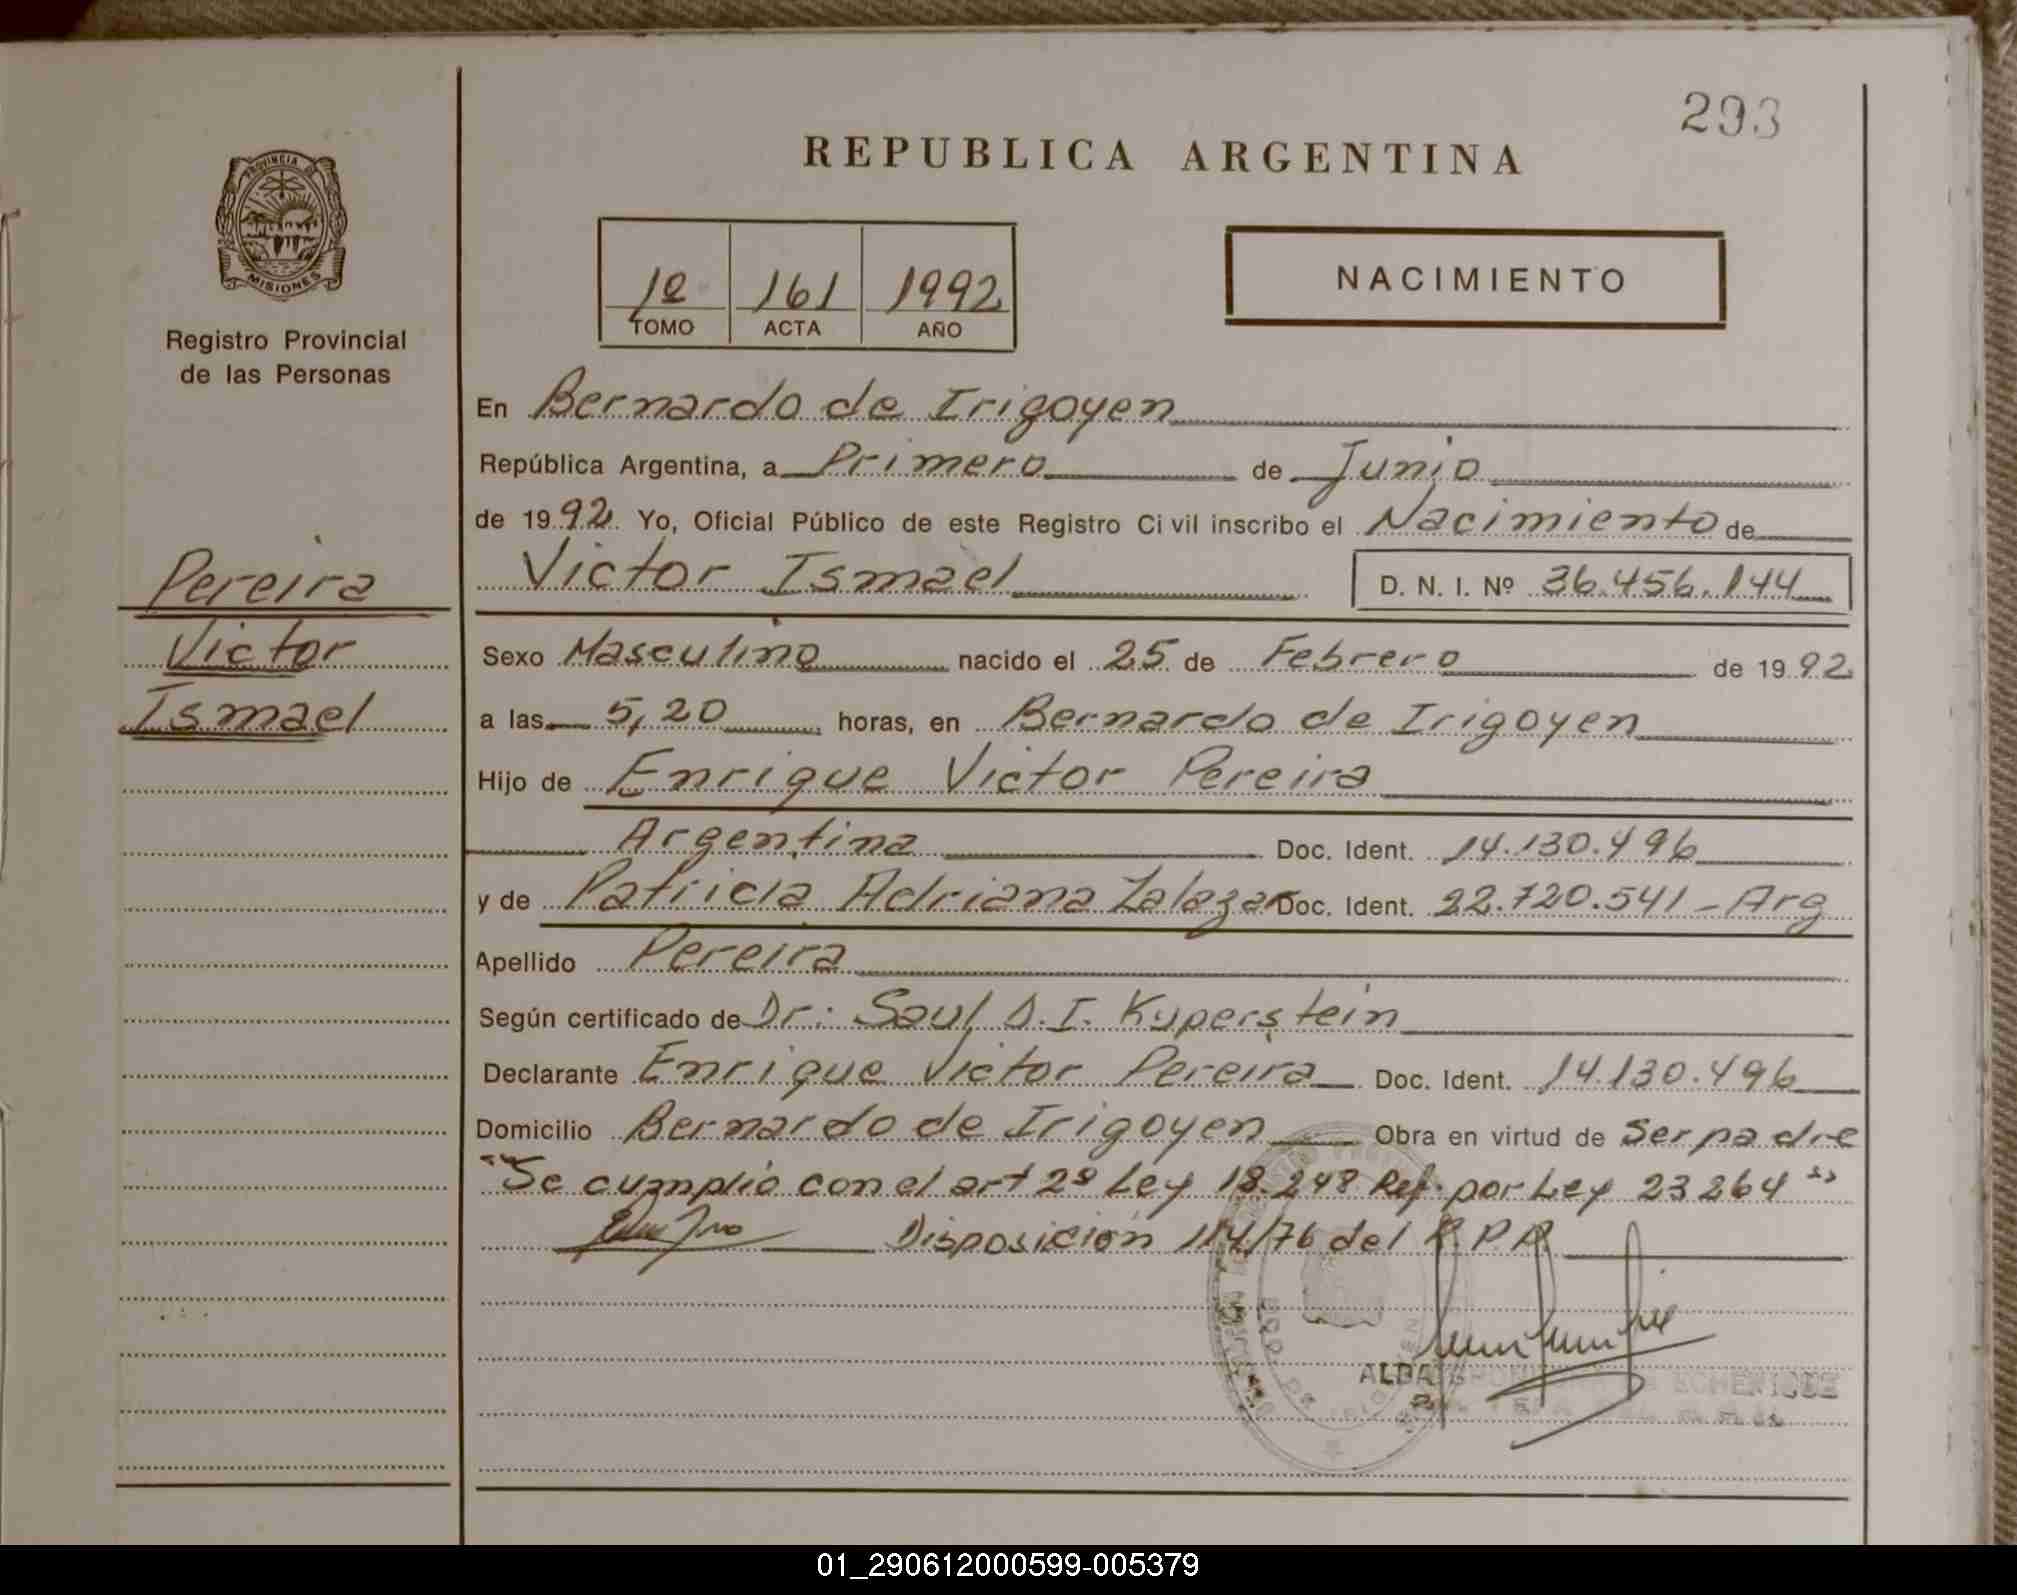 293
REPUBLICA ARGENTINA
PROVINCIA
MISIONES
Registro Provincial
de las Personas
1º 161 1992
TOMO ACTA AÑO
NACIMIENTO
En Bernardo de Irigoyen
República Argentina, a Primero de Junio
de 1992. Yo, Oficial Público de este Registro Civil inscribo el Nacimiento de
Victor Ismael D. N. I. Nº 36.456.144
Pereira
Victor
Ismael
Sexo Masculino nacido el 25 de Febrero de 1992
a las 5,20 horas, en Bernardo de Irigoyen
Hijo de Enrique Victor Pereira
Argentina Doc. Ident. 14.130.496
y de Patricia Adriana Zalazar Doc. Ident. 22.720.541 - Arg
Apellido Pereira
Según certificado de Dr: Saul D. I. Kuperstein
Declarante Enrique Victor Pereira Doc. Ident. 14.130.496
Domicilio Bernardo de Irigoyen Obra en virtud de Ser padre
"Se cumplió con el art 2º Ley 18.248 Ref. por Ley 23264"
Disposición 114/76 del R.P.P.
ALBA ECHENIQUE
01_290612000599-005379